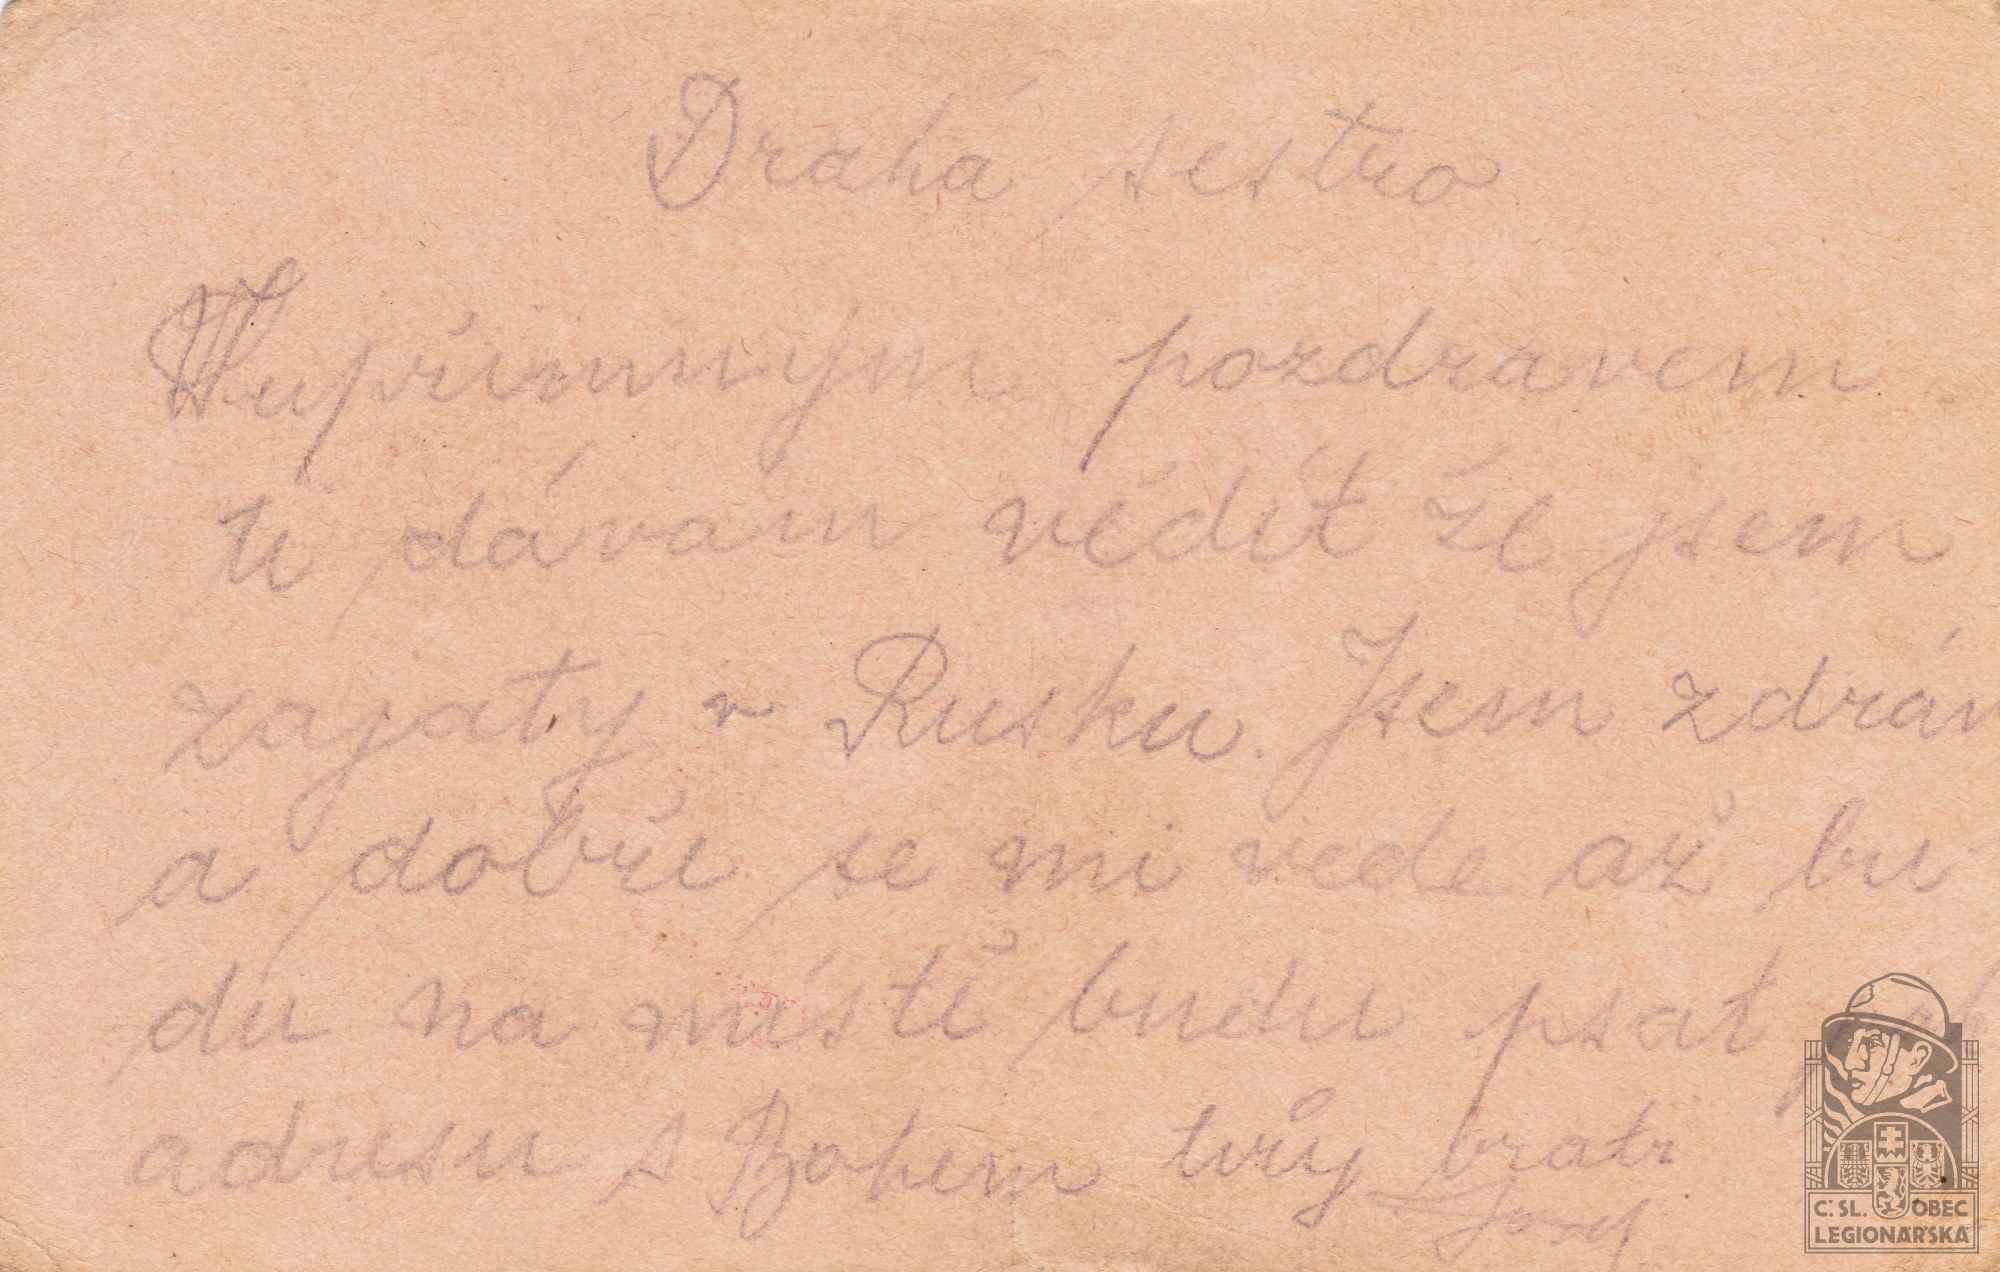 Drahá sestro
Hupřimným pozdravem
ti dávám vědít že jsem
zajatý v Rusku. Jsem zdráv
a dobře se mi vede až bu
du na místě budu psat
adresu s Bohem tvůj bratr
Josef
C. SL. OBEC
LEGIONÁŘSKÁ